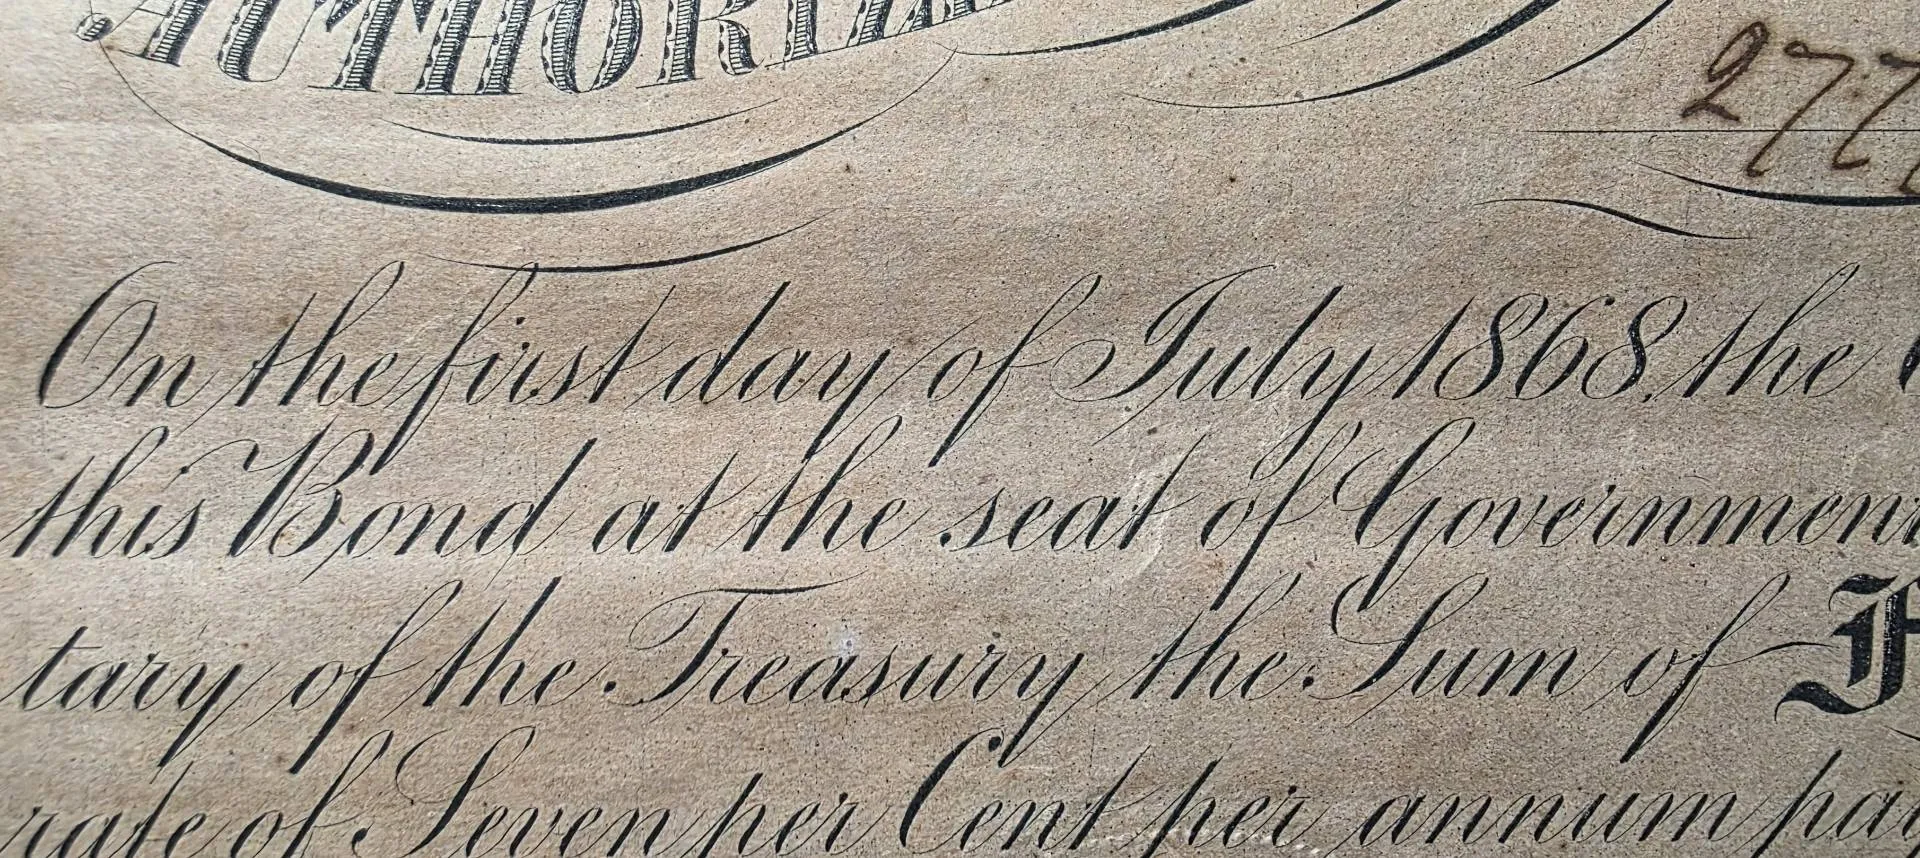 AUTHORIZ
277
On the first day of July 1868, the
this Bond at the seat of Government
tary of the Treasury the Sum of
rate of Seven per Cent per annum pay